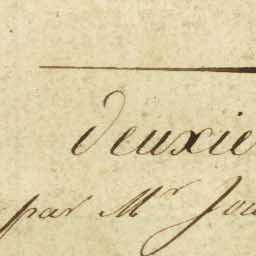 deuxie
par Mr Jou